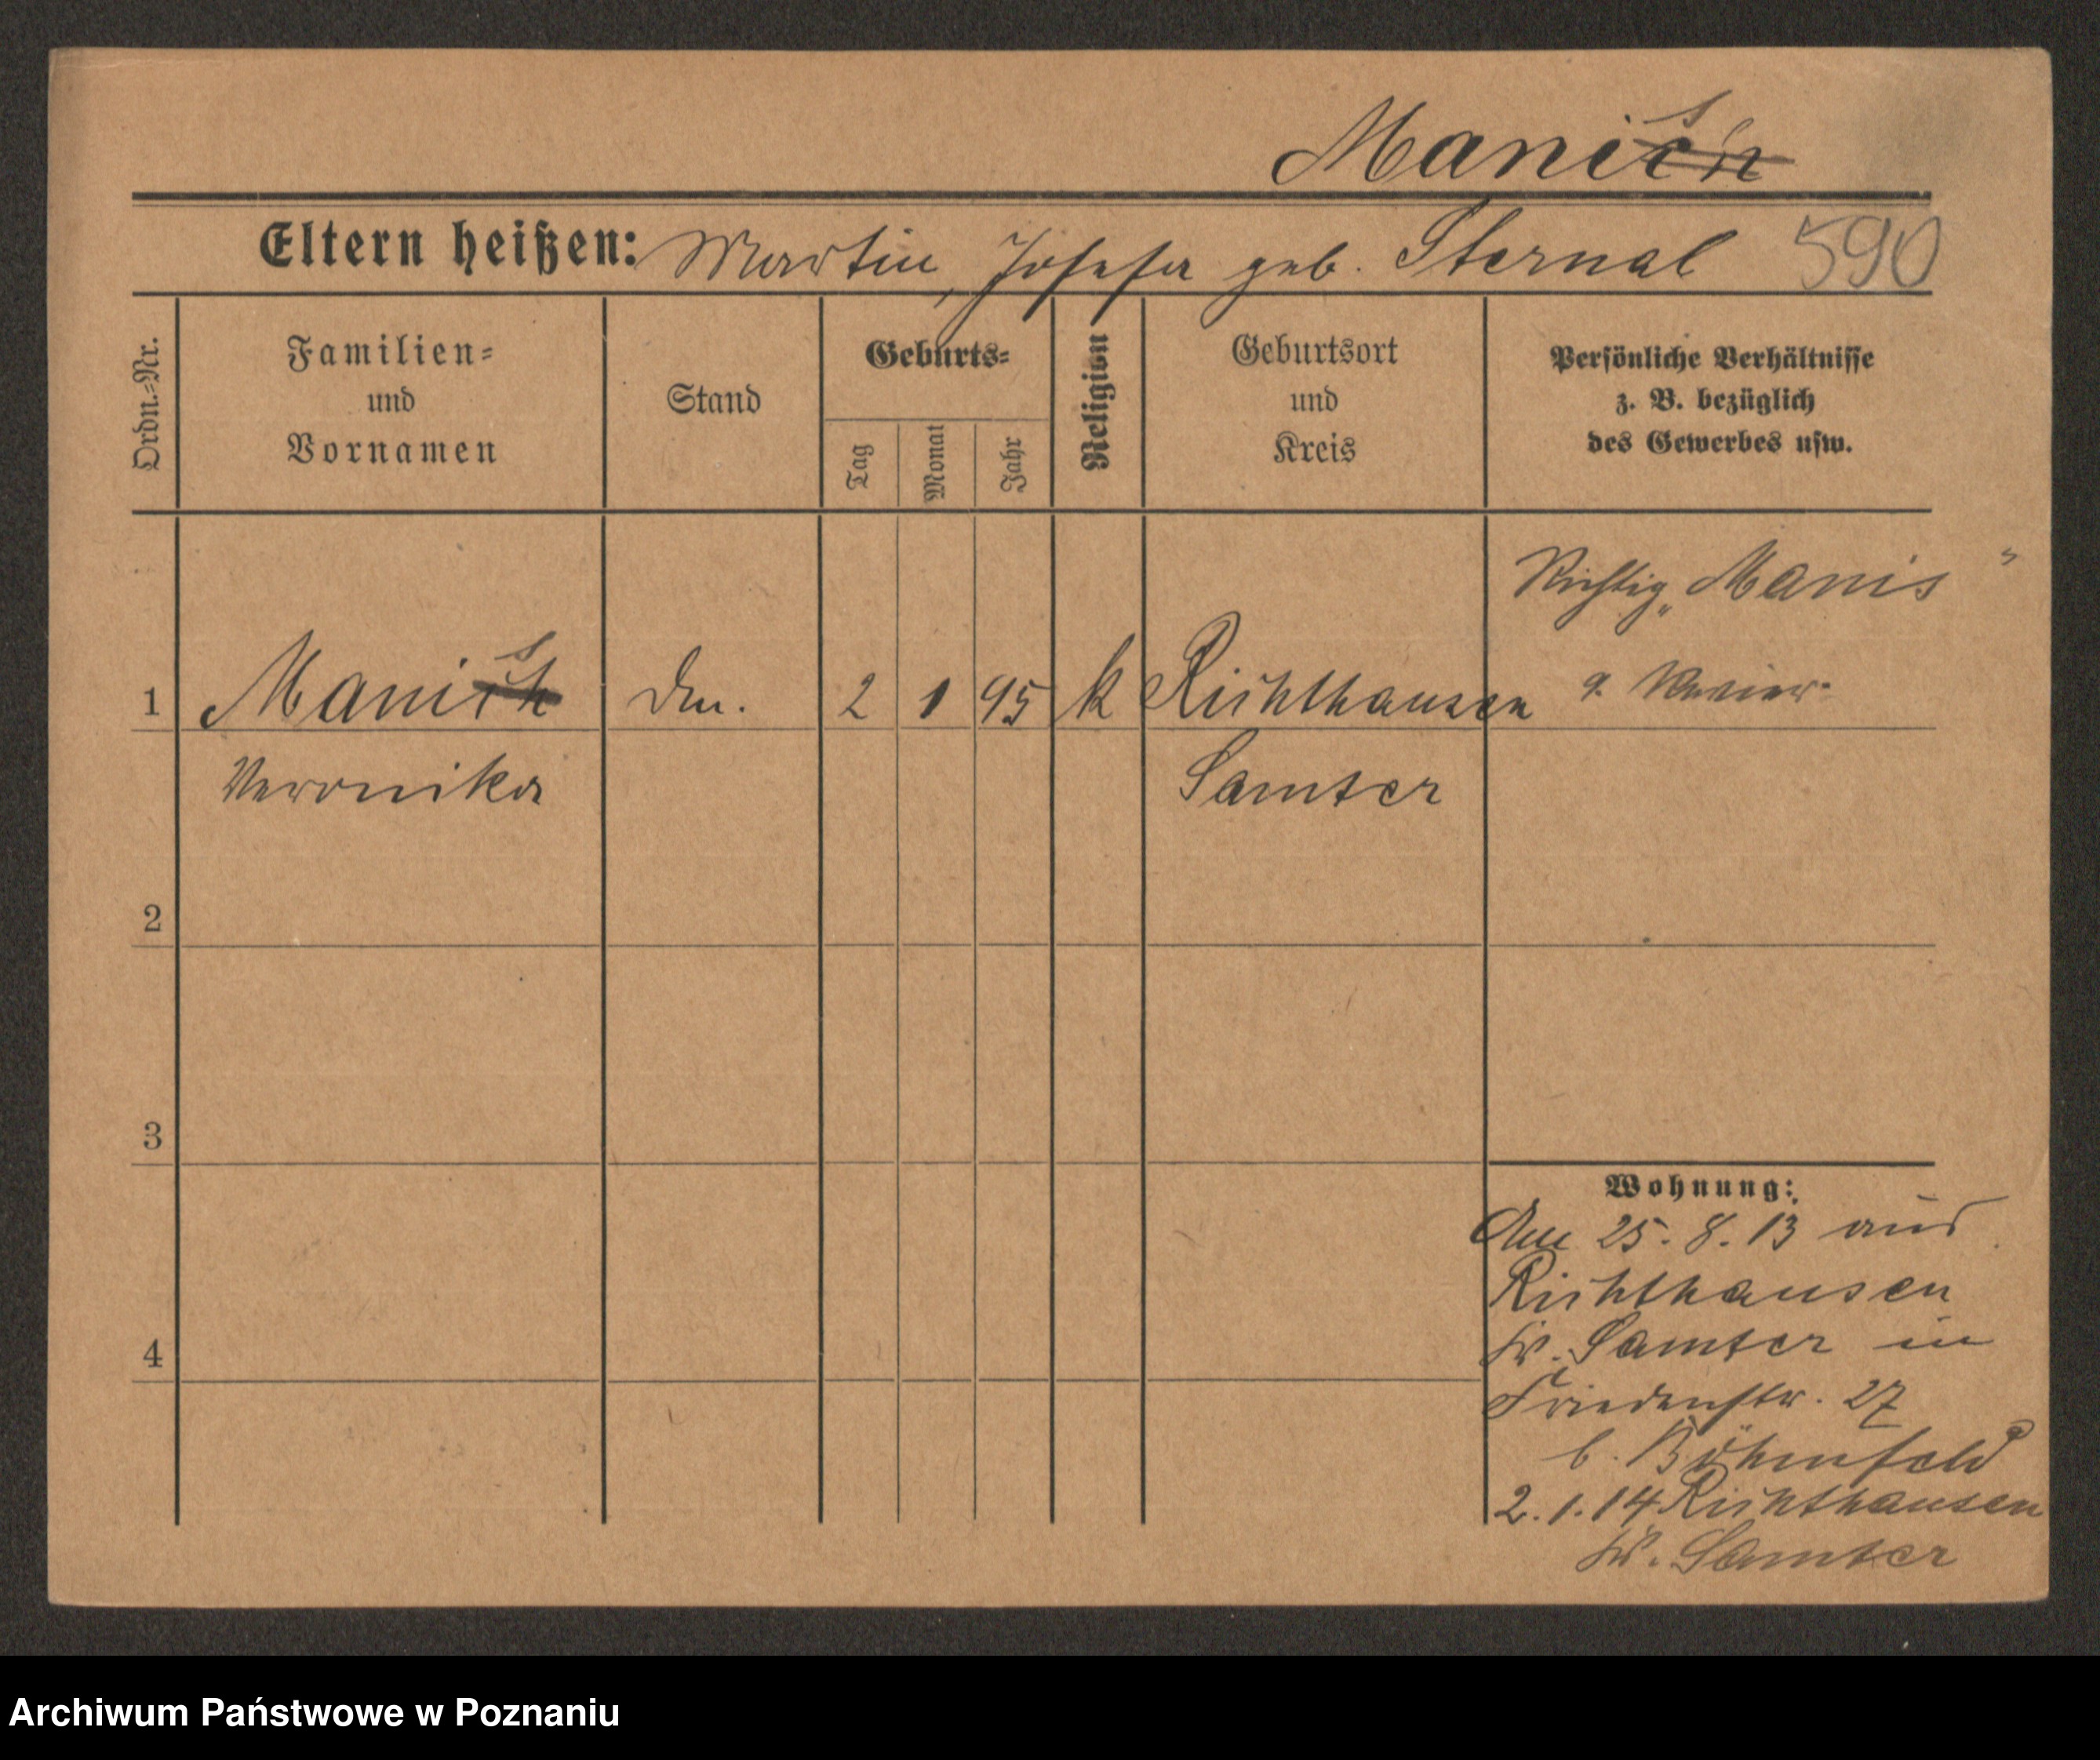 Manis
Eltern heißen: Martin, Josefa geb. Sternal 590
Ordn.-Nr.
Familien-
und
Vornamen
Stand
Geburts-
Tag
Monat
Jahr
Religion
Geburtsort
und
Kreis
Persönliche Verhältnisse
z. B. bezüglich
des Gewerbes usw.
Richtig „Manis"
1 Manis Dm. 2 1 95 k Richthausen 9. Revier
Veronika Samter
2
3
Wohnung:
Am 25.8.13 aus
Richthausen
Kr. Samter in
4
Friedenstr. 27
b. Böhmfeld
2.1.14 Richthausen
Kr. Samter
Archiwum Państwowe w Poznaniu